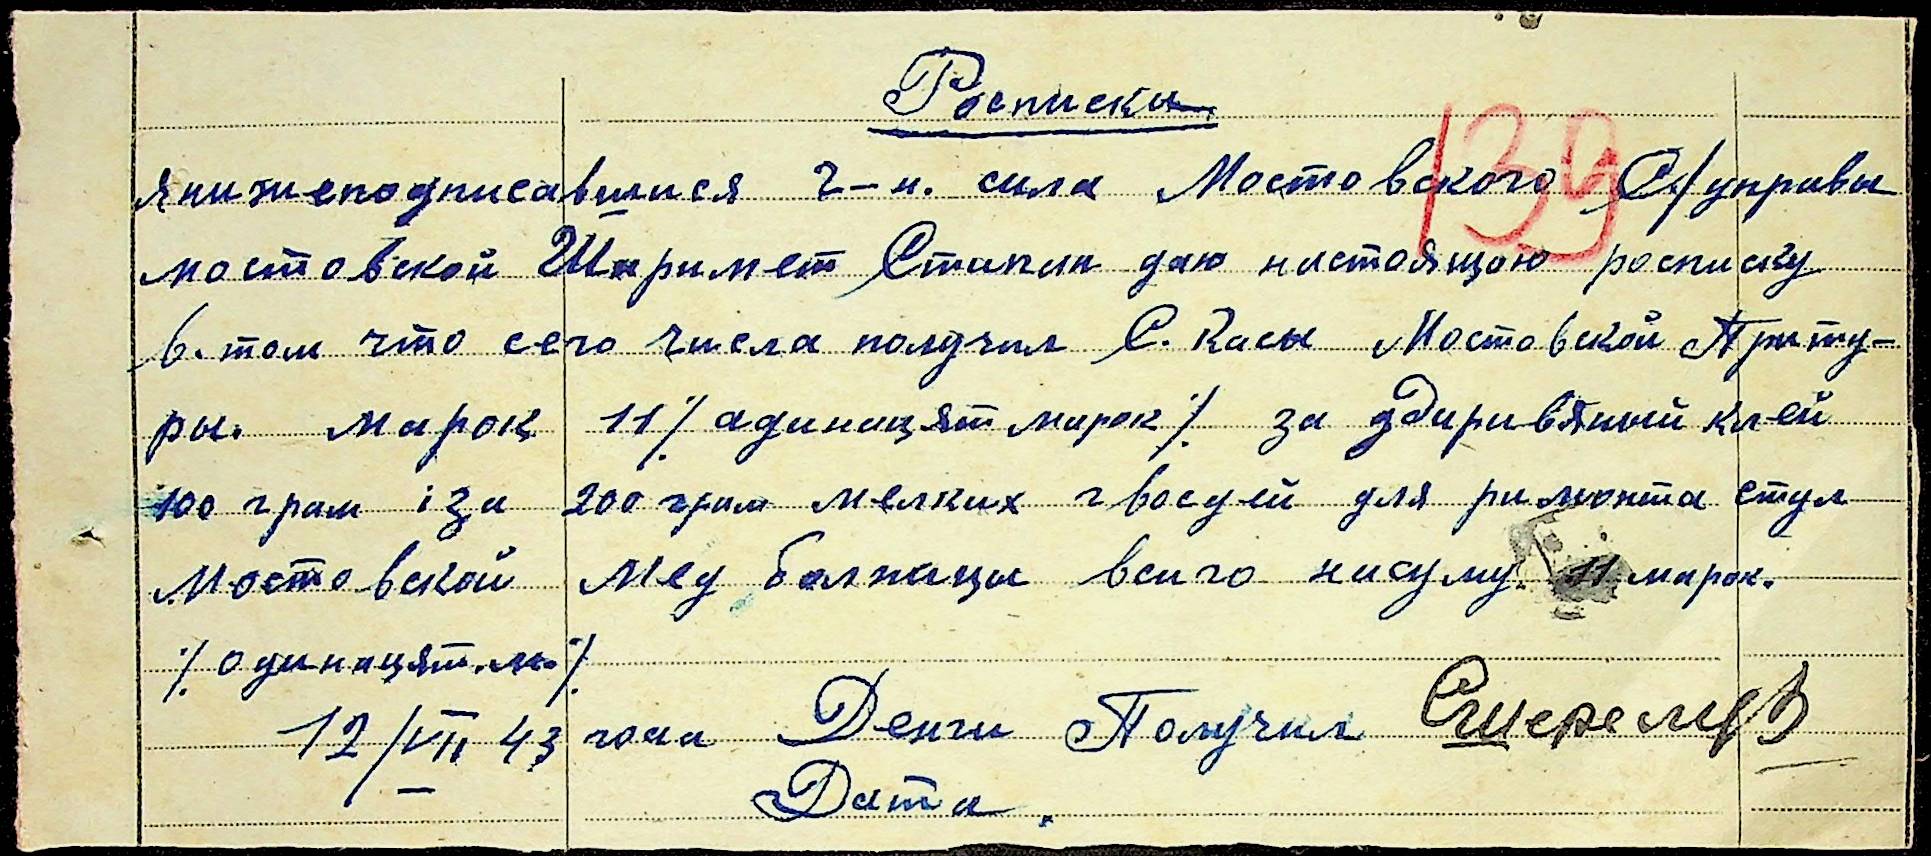 Росписка
139
я нижеподписавшися г-н. сила Мостовского С/управы
мостовской Шаримет Стипан даю настоящою росписку
в. том что сего числа получил С. Касы Мостовской
ры. марок 11 /. адинацят марок /. за дбиривяный клей
100 грам і за 200 грам мелких гвосдей для римонта стул
Мостовской Мед болницы всиго насуму. 11 марок.
/. одинацят. м. /.
12/VII 43 года Денги Получил СШеремет
Дата.